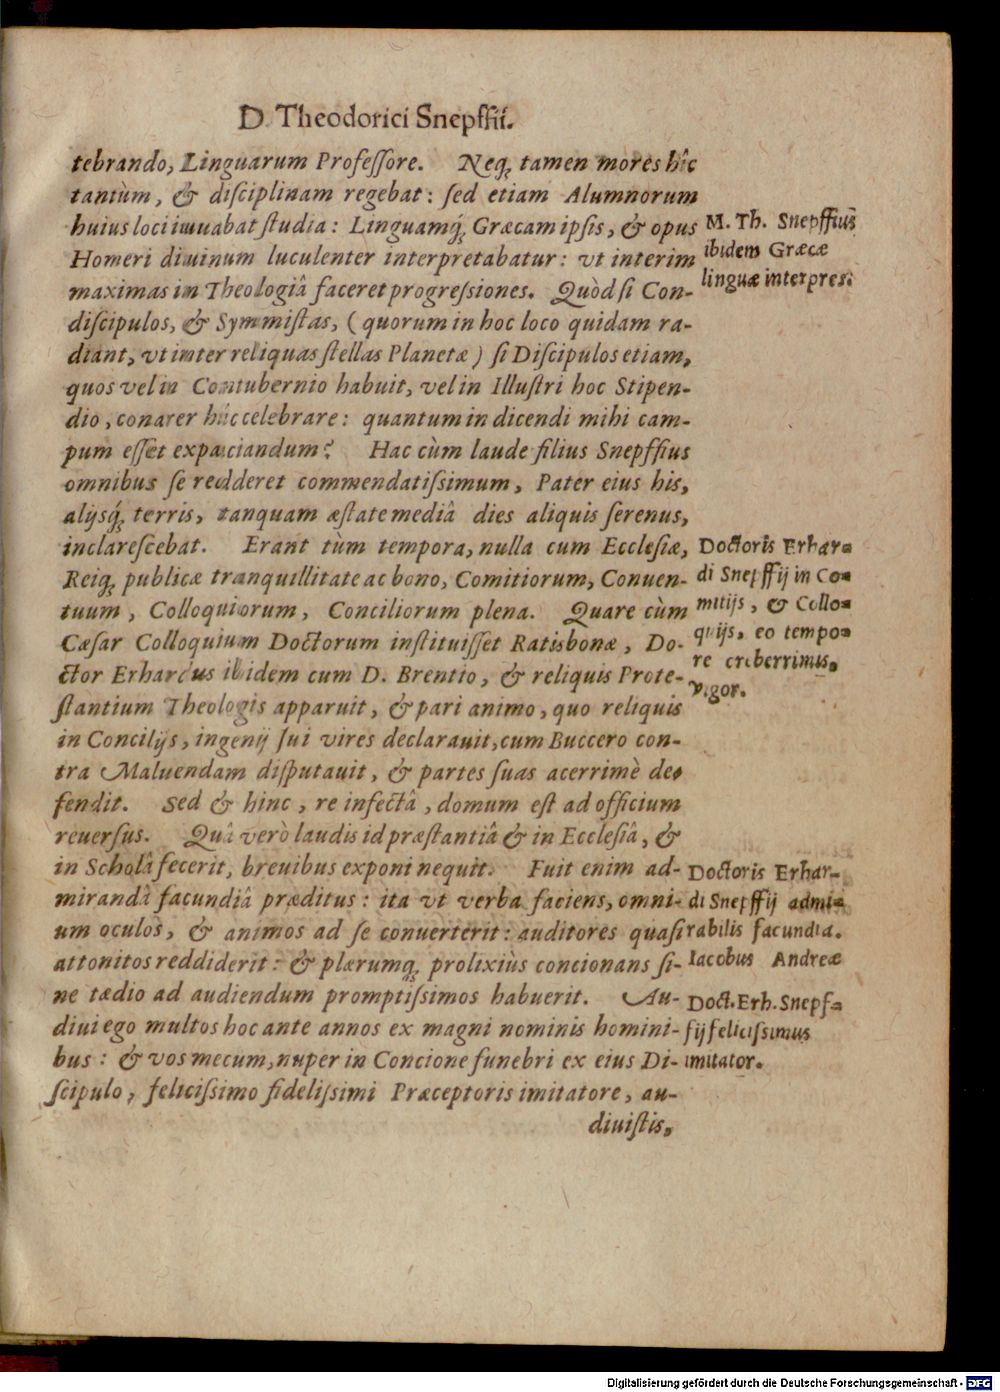 D. Theodorici Snepffii.
tebrando, Linguarum Professore. Neq; tamen mores hîc
tantùm, & disciplinam regebat: sed etiam Alumnorum
huius loci iuuabat studia: Linguamq́; Græcam ipsis, & opus
Homeri diuinum luculenter interpretabatur: vt interim
maximas in Theologiâ faceret progressiones. Quòd si Con-
discipulos, & Symmistas, (quorum in hoc loco quidam ra-
diant, vt inter reliquas stellas Planetæ) si Discipulos etiam,
quos vel in Contubernio habuit, vel in Illustri hoc Stipen-
dio, conarer hîc celebrare: quantum in dicendi mihi cam-
pum esset expaciandum? Hac cùm laude filius Snepffius
omnibus se redderet commendatissimum, Pater eius his,
alijsq́; terris, tanquam æstate mediâ dies aliquis serenus,
inclarescebat. Erant tùm tempora, nulla cum Ecclesiæ,
Reiq; publicæ tranquillitate ac bono, Comitiorum, Conuen-
tuum, Colloquiorum, Conciliorum plena. Quare cùm
Cæsar Colloquium Doctorum instituisset Ratisbonæ, Do-
ctor Erhardus ibidem cum D. Brentio, & reliquis Prote-
stantium Theologis apparuit, & pari animo, quo reliquis
in Concilijs, ingenij sui vires declarauit, cum Buccero con-
tra Maluendam disputauit, & partes suas acerrimè de-
fendit. Sed & hinc, re infectâ, domum est ad officium
reuersus. Quâ verò laudis id præstantiâ & in Ecclesiâ, &
in Scholâ fecerit, breuibus exponi nequit. Fuit enim ad-
mirandâ facundiâ præditus: ita vt verba faciens, omni-
um oculos, & animos ad se conuerterit: auditores quasi
attonitos reddiderit: & plærumq; prolixiùs concionans si-
ne tædio ad audiendum promptissimos habuerit. Au-
diui ego multos hoc ante annos ex magni nominis homini-
bus: & vos mecum, nuper in Concione funebri ex eius Di-
scipulo, felicissimo fidelissimi Præceptoris imitatore, au-
diuistis,
M. Th. Snepffius
ibidem Græcæ
linguæ interpres.
Doctoris Erhar-
di Snepffij in Co-
mitijs, & Collo-
quijs, eo tempo-
re creberrimis,
vigor.
Doctoris Erhar-
di Snepffij admi-
rabilis facundia.
Iacobus Andreæ
Doct. Erh. Snepf-
fij felicissimus
imitator.
Digitalisierung gefördert durch die Deutsche Forschungsgemeinschaft - DFG